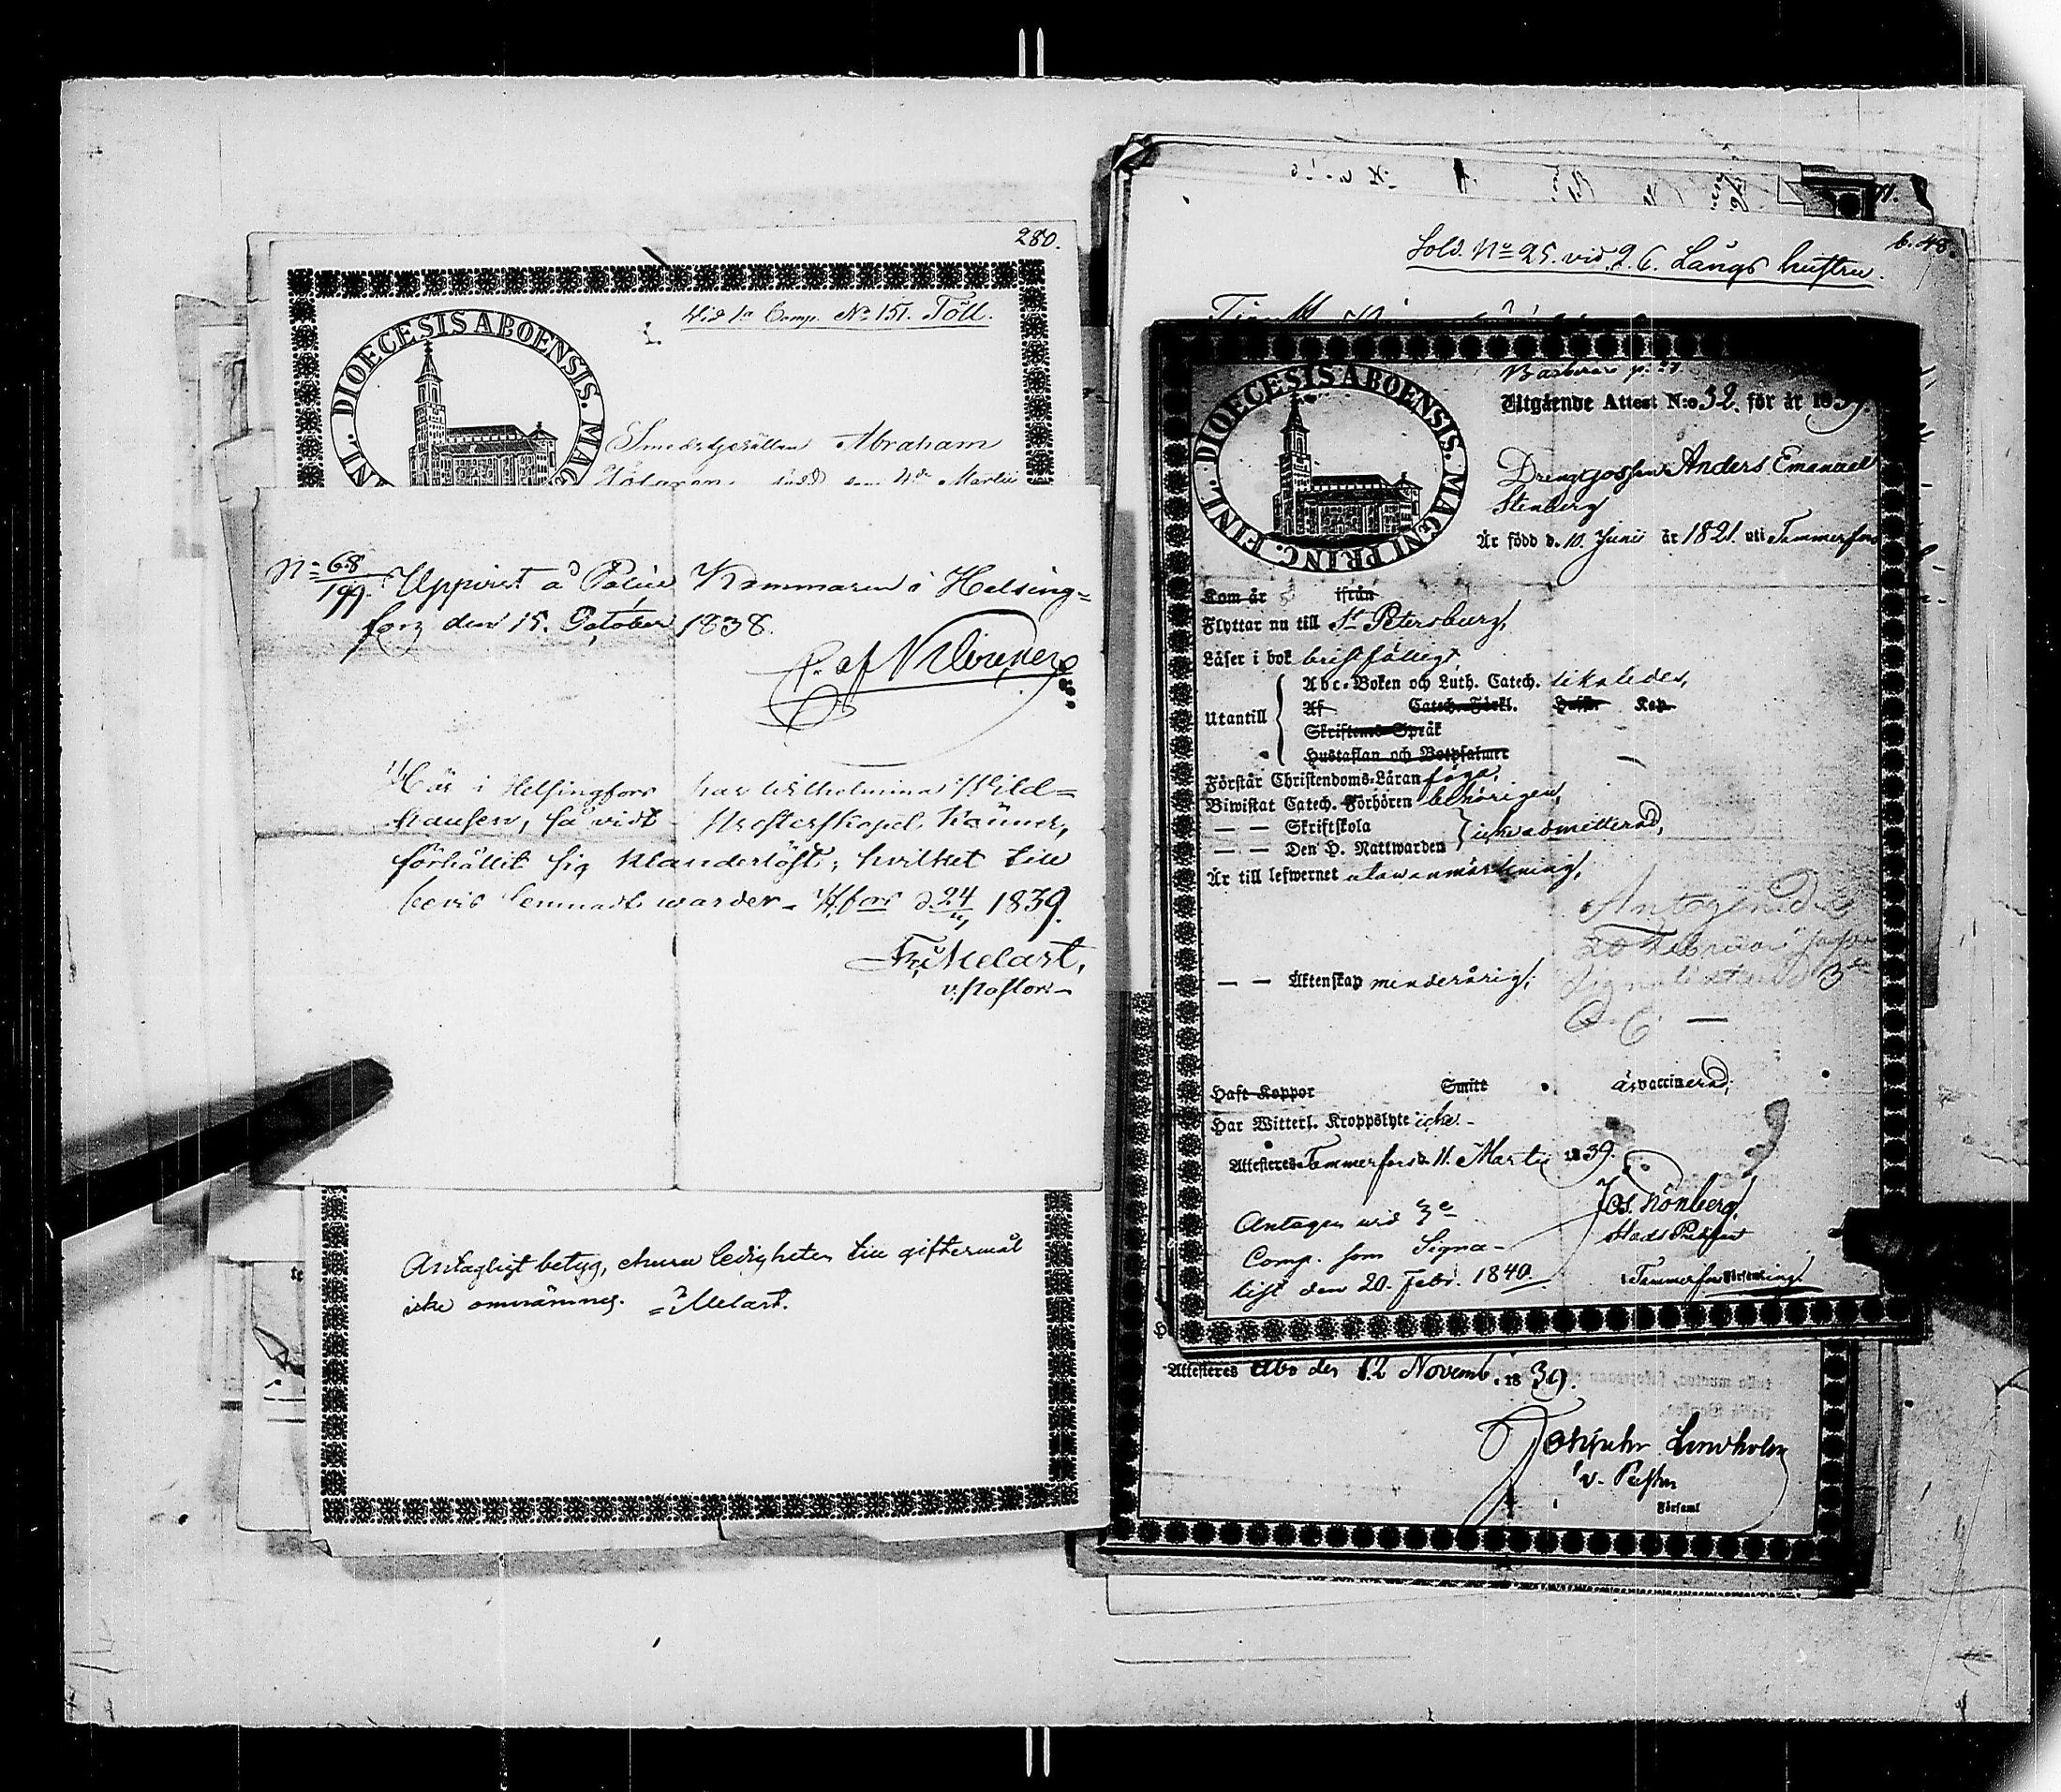 280.
Wid 1a Comp. No 151. Töll.
DIOECESIS ABOENSIS. MAG
INL.
Smedsgesällen Abraham
född den 4de Martii
No 68/199. Uppvist å Police Kammaren i Helsing=
fors den 15. October 1838.
Här i Helsingfors har Wilhelmina Wild=
hausen, så vidt Presterskapet känner,
förhållit sig klanderlöst; hvilket till
bevis lemnadt warder. H:fors d. 24/4 1839.
Melart,
v. Pastor.
Antagligt betyg, ehuru ledigheten till giftermål
icke omnämnes. Melart.
b. 48.
Sold. No 25. vid 2. C. Långs hustru.
DIOECESIS ABOENSIS. MAGNI PRINC. FINL.
Utgående Attest N:o 32. för år 1839.
Drenggossen Anders Emanuel
Stenberg
Är född d. 10 Junii år 1821. uti Tammerfors
Kom år ifrån
Flyttar nu till St Petersburg,
Läser i bok bristfälligt
Utantill
Abc-Boken och Luth. Catech. likaledes,
Af Catech. Förkl. Hufst. Kap.
Skriftens Språk
Hustaflan och Botpsalmer
Förstår Christendoms-Läran föga,
Biwistat Catech. Förhören behörigen,
— — Skriftskola
— — Den H. Nattwarden } icke admitterad,
Är till lefwernet utan anmärkning,
Antagen d.
20 Februari
Signalist vid 3
— — Äktenskap minderårig;
Haft Koppor Smitt är vaccinerad;
Har Witterl. Kroppslyte icke.
Attesteras Tammerfors d. 11. Martii 1839.
Antagen wid 3e
Comp. som Signa-
list den 20. Febr. 1840.
Grönberg,
Stads Pastor
i Tammerfors Församling.
Attesteras Åbo den 12 Novemb. 1839.
Lindholm
v. Pastor
Församl